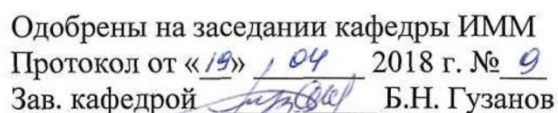 Одобрены на заседании кафедры ИММ
Протокол от «19» 04 2018 г. № 9
Зав. кафедрой Б.Н. Гузанов